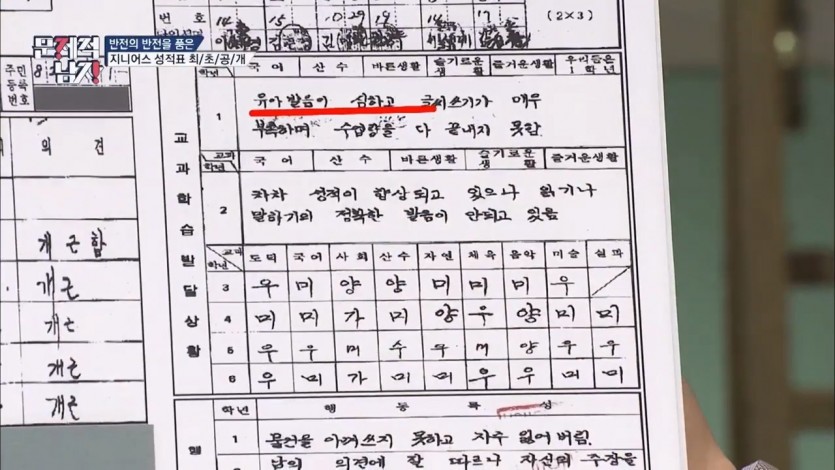 문제적 남자!
반전의 반전을 품은
지니어스 성적표 최/초/공/개
번 호 14 15 10 29 19 14 17 (2×3)
주민 등록 번호
의 견
개근함
개근
개근
개근
개근
교과학습발달상황
학년 국어 산수 바른생활 슬기로운생활 즐거운생활 우리들은 1학년
1 유아 발음이 심하고 글씨쓰기가 매우
부족하며 수업량을 다 끝내지 못함
교과 학년 국어 산수 바른생활 슬기로운생활 즐거운생활
2 차차 성적이 향상되고 있으나 읽기나
말하기의 정확한 발음이 안되고 있음
교과 학년 도덕 국어 사회 산수 자연 체육 음악 미술 실과
3 우 미 양 양 미 미 미 우
4 미 미 가 미 양 우 양 미 미
5 우 우 미 수 우 미 양 우 우
6 우 미 가 미 미 우 우 미 미
학년 행동특성
1 물건을 아껴쓰지 못하고 자주 잃어버림.
남의 의견에 잘 따르나 자신의 주장을